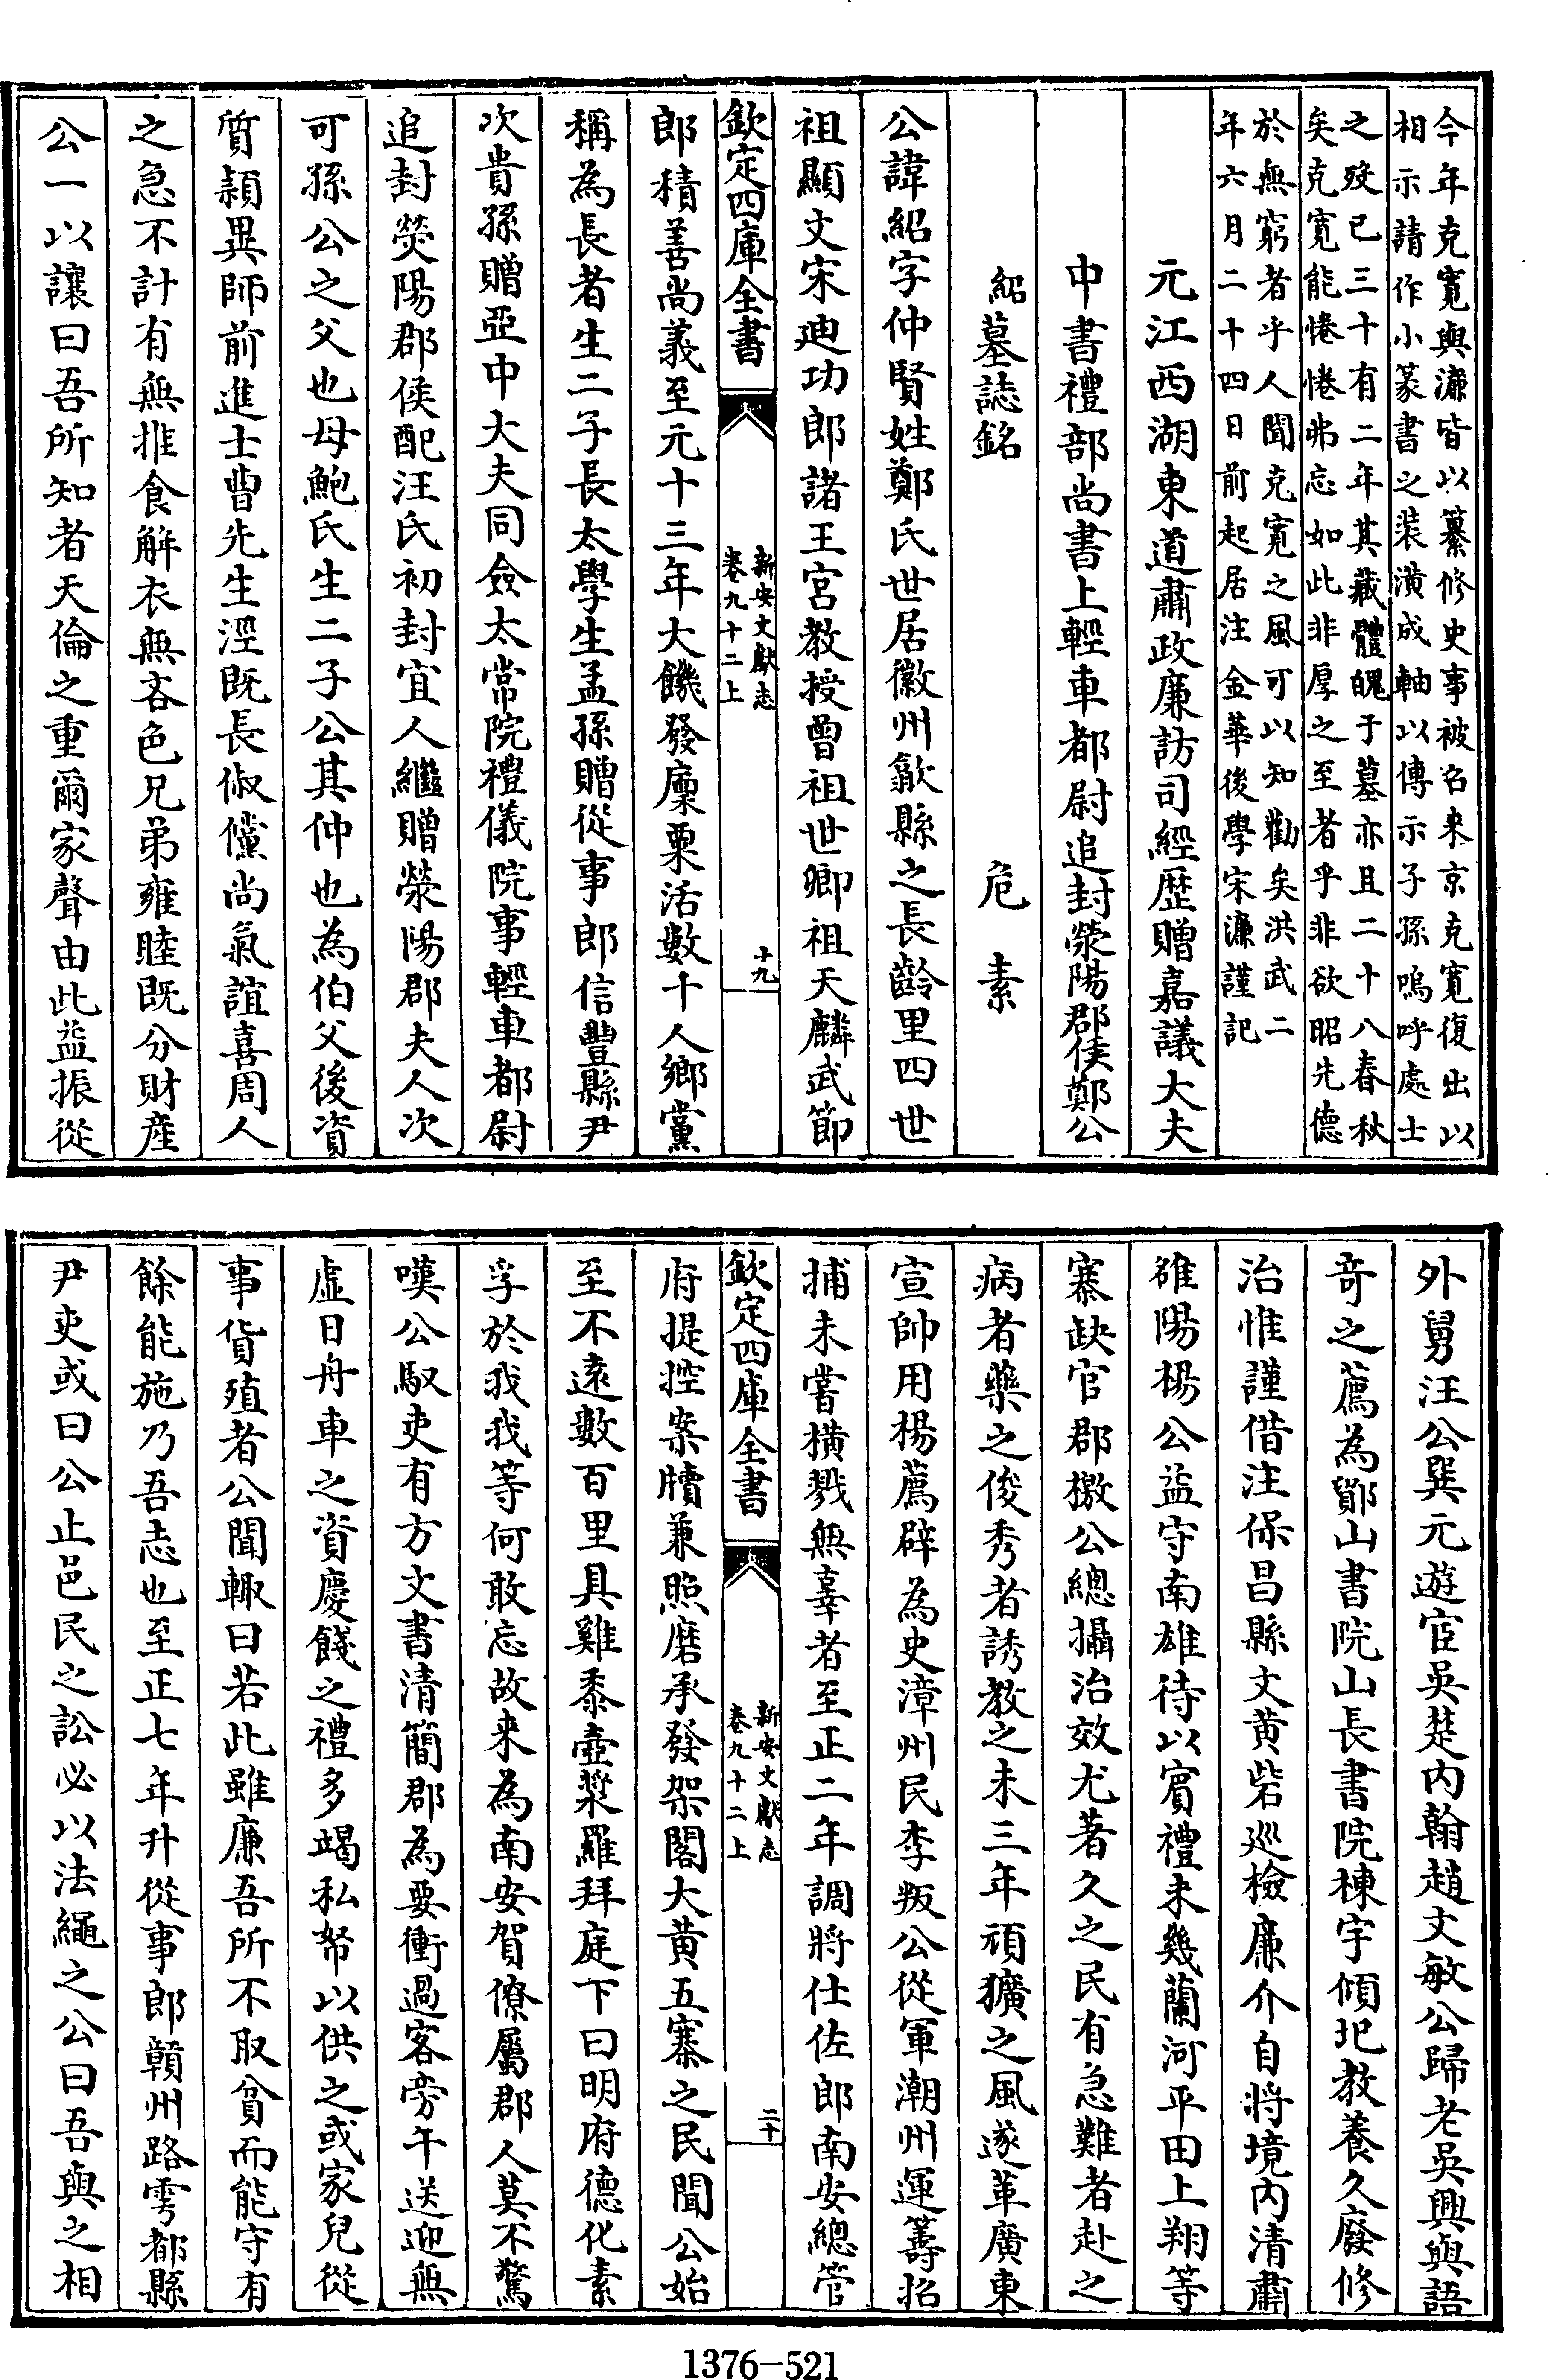 今年克寛與濂皆以纂修史事被召来京克寛復出以
相示請作小篆書之装潢成軸以傳示子孫嗚呼處士
之殁已三十有二年其藏體魄于墓亦且二十八春秋
矣克寛能惓惓弗忘如此非厚之至者乎非欲昭先德
於無窮者乎人聞克寛之風可以知勸矣洪武二
年六月二十四日前起居注金華後學宋濂謹記
元江西湖東道肅政廉訪司經歴贈嘉議大夫
中書禮部尚書上輕車都尉追封滎陽郡侯鄭公
紹墓誌銘　危素
公諱紹字仲賢姓鄭氏世居徽州歙縣之長齡里四世
祖顯文宋廸功郎諸王宮教授曾祖世卿祖天麟武節
欽定四庫全書　新安文獻志　卷九十二上　十九
郎積善尚義至元十三年大饑發廩粟活數千人鄉黨
稱為長者生二子長太學生孟孫贈從事郎信豐縣尹
次貴孫贈亞中大夫同僉太常院禮儀院事輕車都尉
追封滎陽郡侯配汪氏初封宜人繼贈滎陽郡夫人次
可孫公之父也母鮑氏生二子公其仲也為伯父後資
質頴異師前進士曹先生涇既長俶儻尚氣誼喜周人
之急不計有無推食解衣無吝色兄弟雍睦既分財産
公一以讓曰吾所知者天倫之重爾家聲由此益振從
外舅汪公巽元遊宦吳楚内翰趙文敏公歸老吳興與語
竒之薦為鄮山書院山長書院棟宇傾圮教養久廢修
治惟謹借注保昌縣文黄砦巡檢廉介自將境内清肅
雒陽楊公益守南雄待以賓禮未幾蘭河平田上翔等
寨缺官郡檄公總攝治效尤著久之民有急難者赴之
病者藥之俊秀者誘教之未三年頑獷之風遂革廣東
宣帥用楊薦辟為史漳州民李叛公從軍潮州運籌招
捕未嘗横戮無辜者至正二年調將仕佐郎南安總管
欽定四庫全書　新安文獻志　卷九十二上　二十
府提控案牘兼照磨承發架閣大黄五寨之民聞公始
至不逺數百里具雞黍壺漿羅拜庭下曰明府德化素
孚於我我等何敢忘故来為南安賀僚屬郡人莫不驚
嘆公馭吏有方文書清簡郡為要衝過客旁午送迎無
虚日舟車之資慶餞之禮多竭私帑以供之或家兒從
事貨殖者公聞輙曰若此雖廉吾所不取貧而能守有
餘能施乃吾志也至正七年升從事郎贛州路雩都縣
尹吏或曰公止邑民之訟必以法繩之公曰吾與之相
1376-521